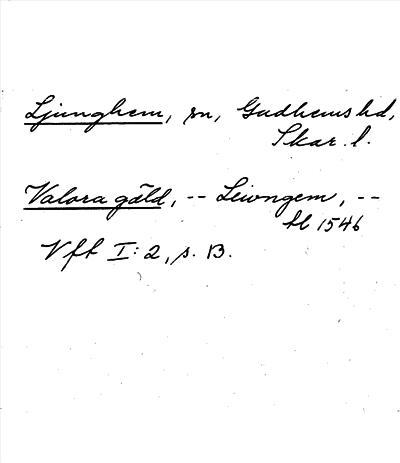 Ljunghem, sn, Gudhems hd,
Skar. l.
Valora gäld, -- Leivngem, --
tl 1546
Vft I:2, s. 13.